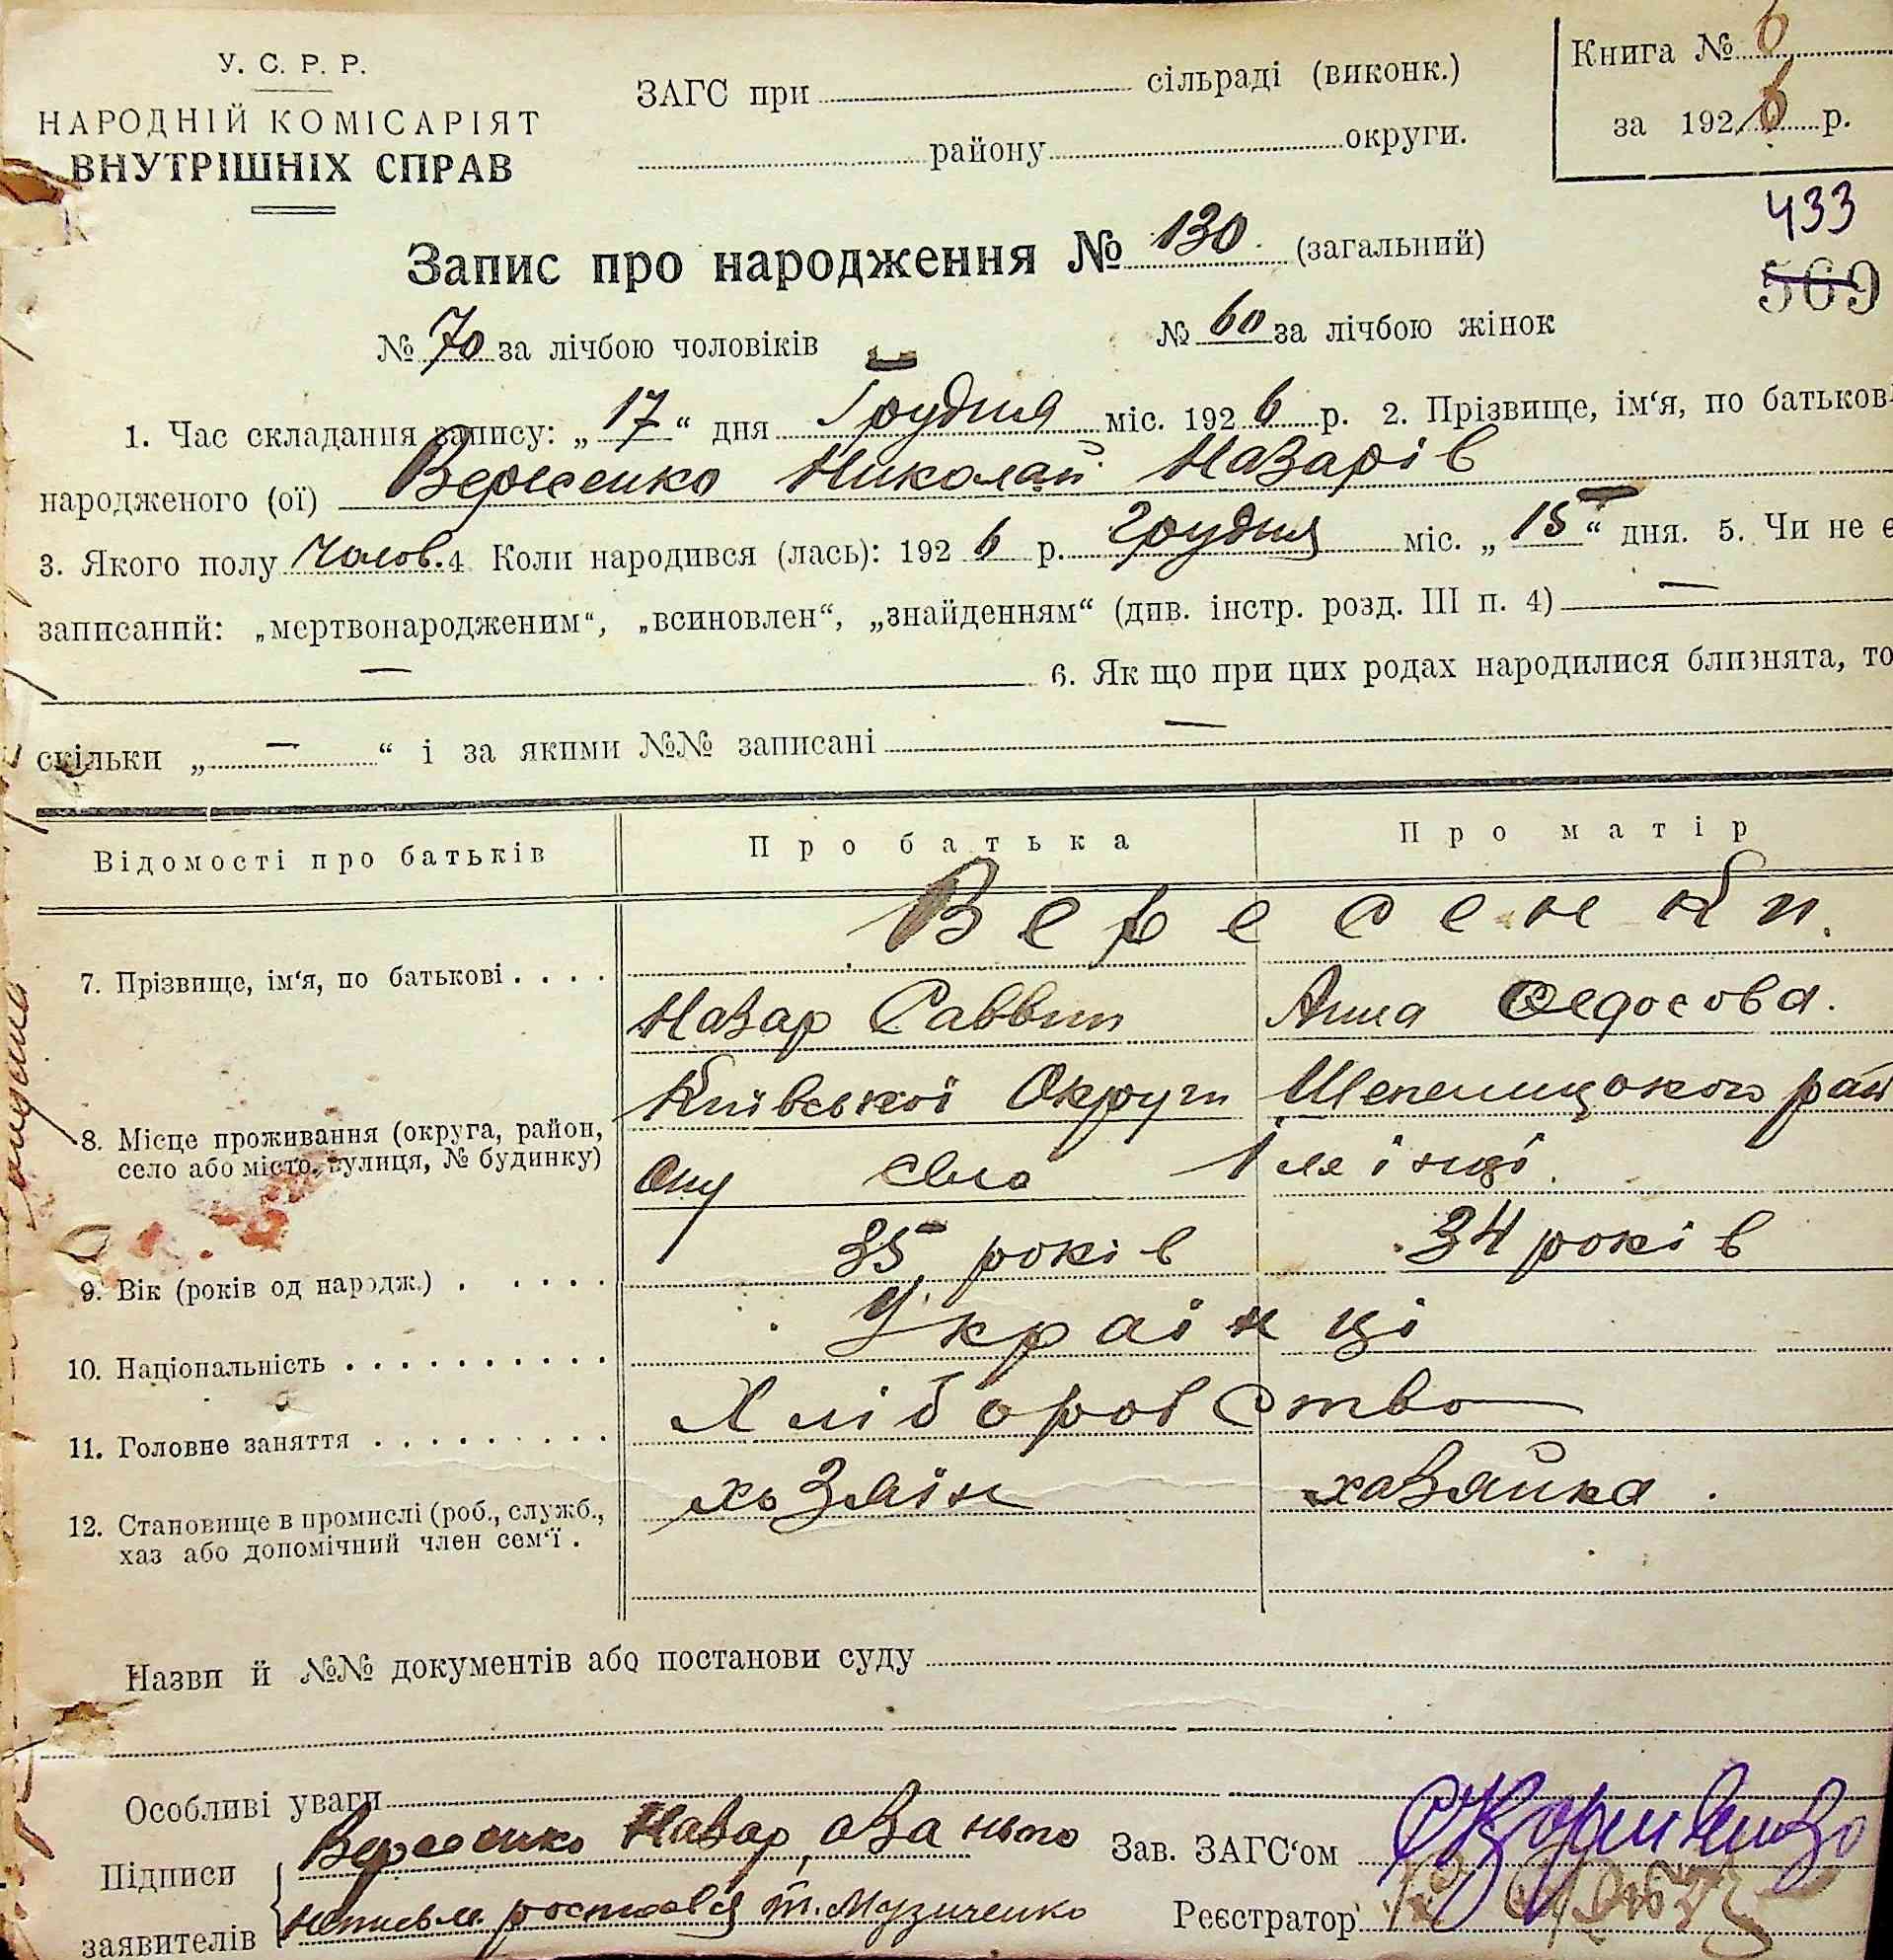 У. С. Р. Р.
НАРОДНІЙ КОМІСАРІЯТ
ВНУТРІШНІХ СПРАВ
ЗАГС при сільраді (виконк.)
району округи.
Книга № 6
за 1926 р.
433
569
Запис про народження № 130 (загальний)
№ 70 за лічбою чоловіків № 60 за лічбою жінок
1. Час складання запису: „17“ дня Грудня міс. 1926 р. 2. Прізвище, ім‘я, по батьков
народженого (ої) Вересенко Николай Назарів
3. Якого полу Чолов. 4 Коли народився (лась): 1926 р. Грудня міс. „15“ дня. 5. Чи не є
записаний: „мертвонародженим“, „всиновлен“, „знайденням“ (див. інстр. розд. III п. 4) —
— 6. Як що при цих родах народилися близнята, то
скільки „ — “ і за якими №№ записані —
Відомості про батьків Про батька Про матір
Вересенки.
7. Прізвище, ім‘я, по батькові . . . .
Назар Саввин Анна Федосова.
8. Місце проживання (округа, район, село або місто, вулиця, № будинку)
Київської Округи Шепелицокого рай
ону село Іллінці.
9. Вік (років од народж.) . . . . . 35 років 34 років
10. Національність . . . . . . . . . . . Українці
11. Головне заняття . . . . . . . . . Хліборобство
12. Становище в промислі (роб., служб., хаз або допомічний член сем‘ї .
хозяїн хазяйка.
Назви й №№ документів або постанови суду
Особливі уваги
Підписи заявителів
Вересенко Назар, а за нього
неписьм. росписався т. Музиченко
Зав. ЗАГС‘ом
Реєстратор